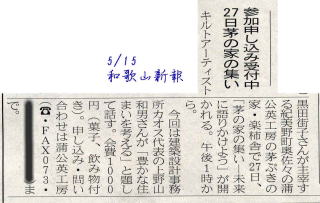 5/15
和歌山新報
参加申し込み受付中
27日茅の家の集い
キルトアーティスト
黒田街子さんが主宰す
る紀美野町奥佐々の蒲
公英工房の茅ぶきの
家・楽柿舎で27日、
「茅の家の集い・未来
に語りかけよう」が開
かれる。午後1時か
ら。
今回は建築設計事務
所カオス代表の上野山
和男さんが「豊かな住
まいを考える」と題し
て話す。会費1000
円(菓子、飲み物付
き)。申し込み・問い
合わせは蒲公英工房
(☎・FAX073・
ま
で。